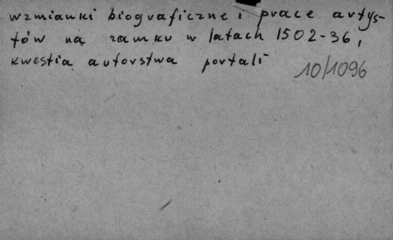 wzmianki biograficzne i prace artys-
tów na zamku w latach 1502-36,
kwestia autorstwa portali
10/1096